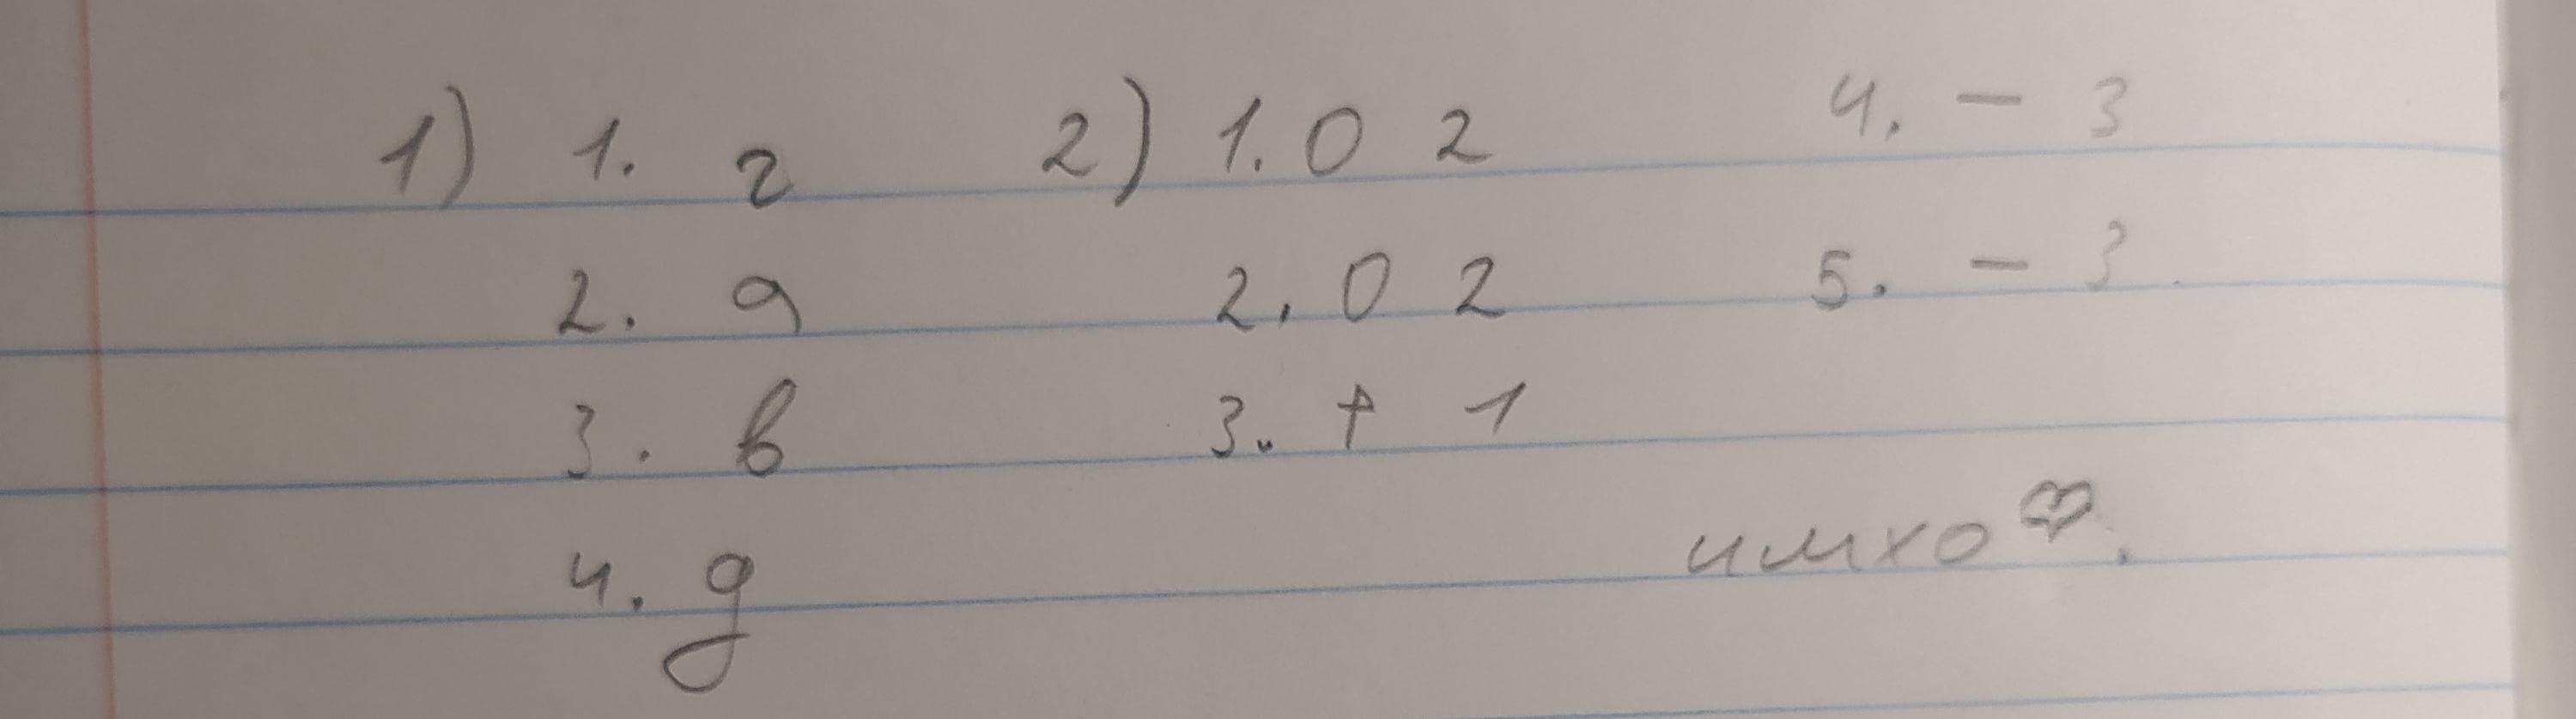 1) 1. г
2. а
3. в
4. д
2) 1. 0 2
2. 0 2
3. + 1
4. - 3
5. - 3.
имхо♡.